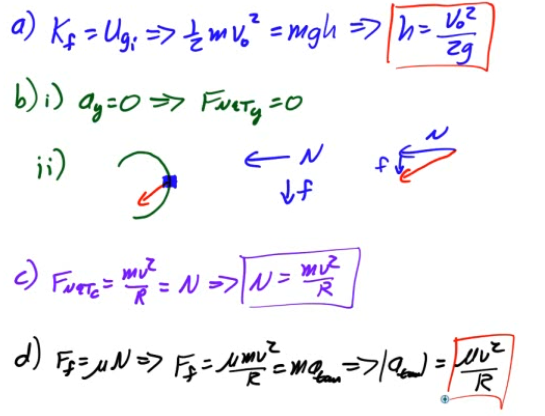 a) K_f = U_gi => ½mv₀² = mgh => h = v₀²/2g
b) i) a_y = 0 => F_NETy = 0
ii) N f N f
c) F_NETc = mv²/R = N => N = mv²/R
d) F_f = μN => F_f = μmv²/R = ma_tan => |a_tan| = μv²/R